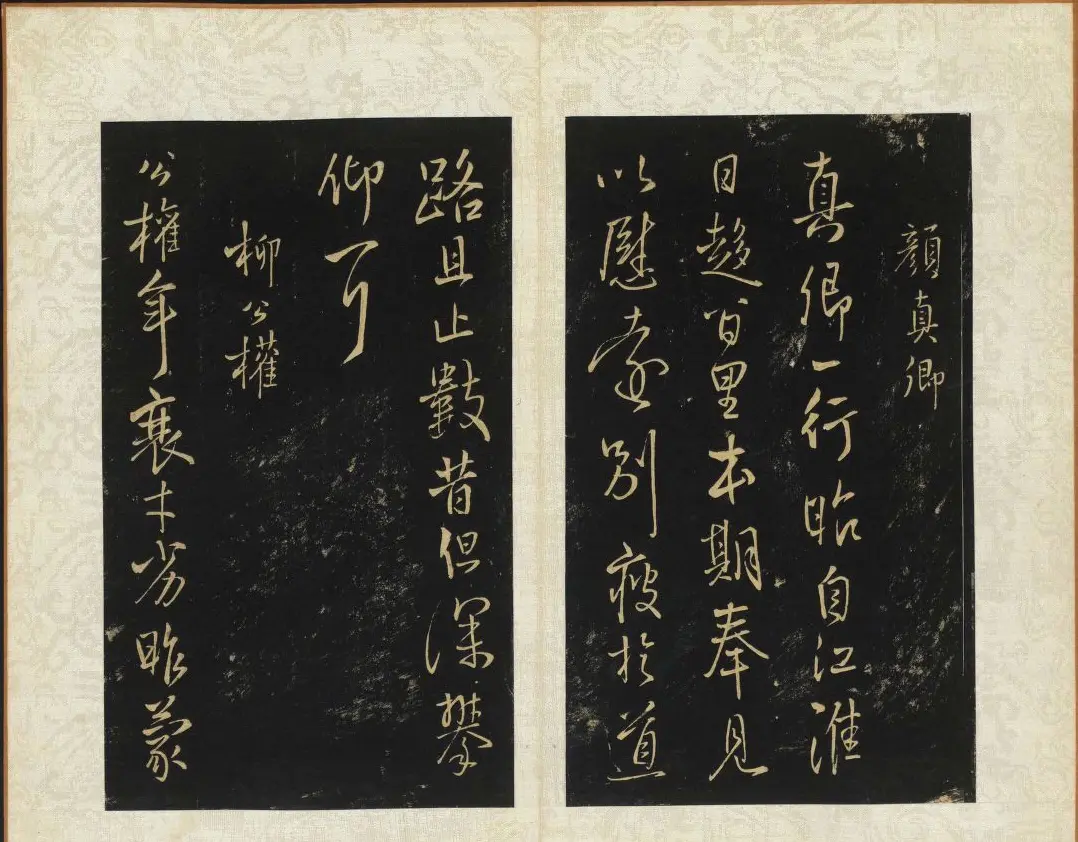 顏真卿
真卿一行昨自江淮
日趨百里本期奉見
以慰遠別疲於道
路且止數昔但深攀
仰
柳公權
公權年衰才劣昨蒙